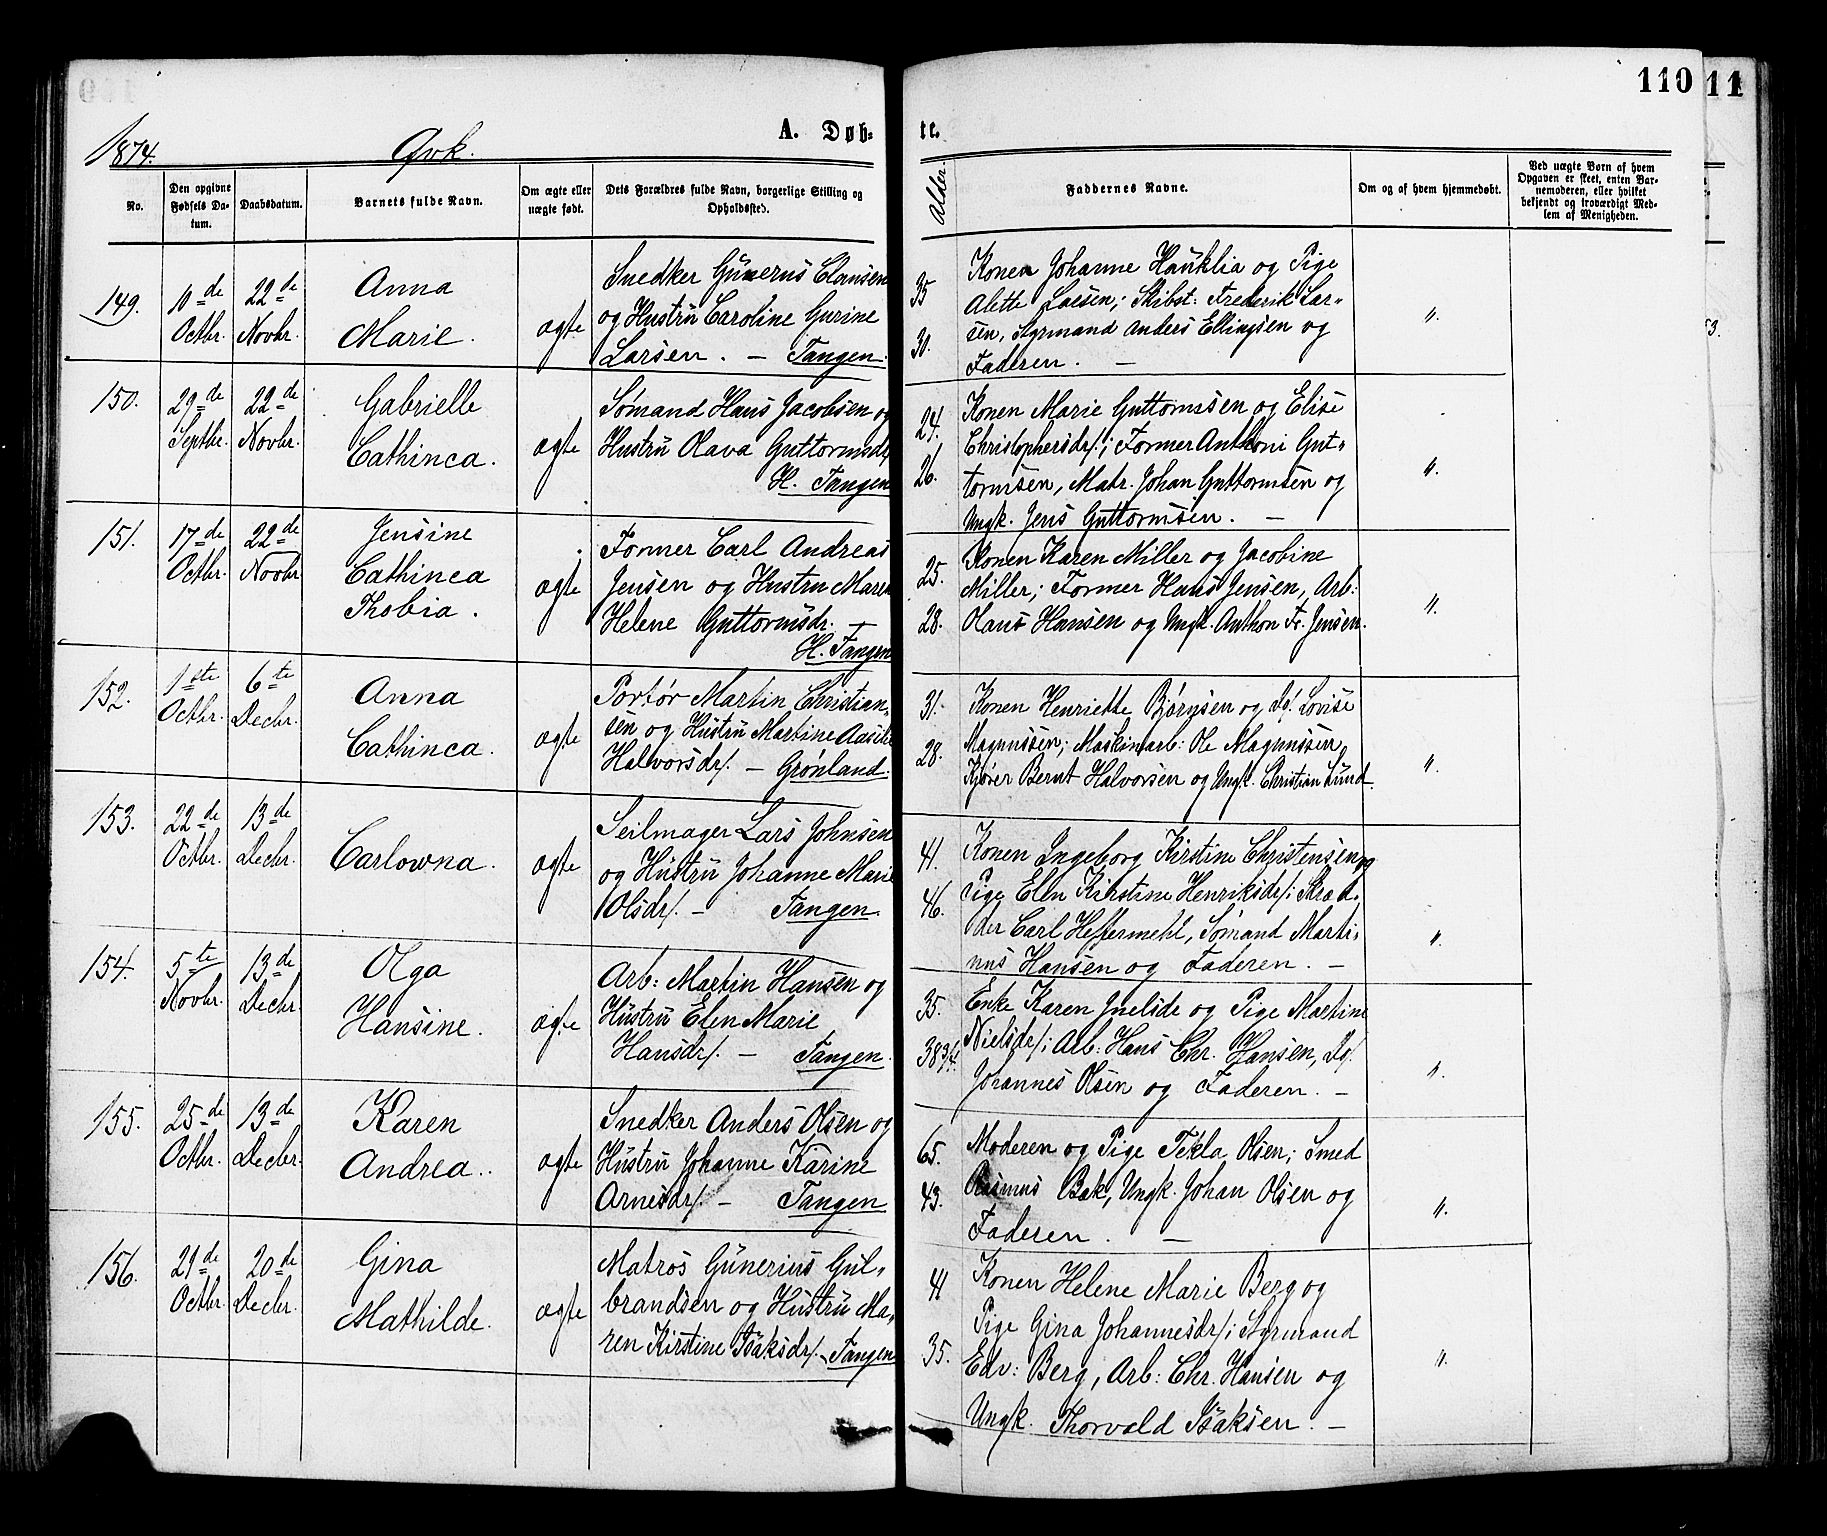 110
11
1874.
Qvk.
A. Døb-
te.
No.
Den opgivne Fødsels Da-tum.
Daabsdatum.
Barnets fulde Navn.
Om ægte eller uægte født.
Dets Forældres fulde Navn, borgerlige Stilling og Opholdssted.
Alder.
Faddernes Navne.
Om og af hvem hjemmedøbt.
Ved uægte Børn af hvem Opgaven er skeet, enten Bar-nemoderen, eller hvilket bekjendt og troværdigt Med-lem af Menigheden.
149.
10de Octbr.
22de Novbr.
Anna
Marie.
ægte
Snedker Gunerus Clausen
og Hustru Caroline Gurine
Larsen. — Tangen.
35
30.
Konen Johanne Hauklia og Pige
Alette Larsen; Skibst: Frederik Lar-
sen, Styrmand Anders Ellingsen og
Faderen. —
".
150.
29de Septbr.
22de Novbr.
Gabrielle
Cathinca.
ægte
Sømand Hans Jacobsen og
Hustru Olava Guttormsdr/.
H. Tangen
24.
26.
Konen Marie Guttormsen og Elise
Christophersdr/.; Former Anthoni Gut-
tormsen, Matr. Johan Guttormsen og
Ungk. Jens Guttormsen. —
".
151.
17de Octbr.
22de Novbr
Jensine
Cathinca
Thobia.
ægte
Former Carl Andreas
Jensen og Hustru Maren
Helene Guttormsdr. —
H. Tangen
25.
28.
Konen Karen Miller og Jacobine
Miller; Former Hans Jensen, Arb:
Hans Hansen og Ungk. Anthon Fr. Jensen.
".
152.
1ste Octbr.
6te Decbr.
Anna
Cathinca.
ægte
Portør Martin Christian-
sen og Hustru Martine
Halvorsdr/. — Grønland.
31.
28.
Konen Henriette Bjørnsen og Do. Lovise
Magnussen; Maskinarb: Ole Magnussen,
Kjører Bernt Halvorsen og Ungk. Christian Lund.
".
153.
22de Octbr.
13de Decbr.
Carlowna.
ægte
Seilmager Lars Johnsen
og Hustru Johanne Marie
Olsdr/. — Tangen.
41.
46.
Konen Ingeborg Kirstine Christensen og
Pige Elen Kirstine Henriksdr/; Skræd-
der Carl Heffermehl, Sømand Marti-
nus Hansen og Faderen. —
".
154.
5te Novbr.
13de Decbr.
Olga
Hansine.
ægte
Arb: Martin Hansen og
Hustru Elen Marie
Hansdr/. — Tangen.
35.
38 3/4.
Enke Karen og Pige Martine
Nielsdr/; Arb: Hans Chr. Hansen, Do.
Johannes Olsen og Faderen. —
".
155.
25de Octbr.
13de Decbr.
Karen
Andrea.
ægte
Snedker Anders Olsen og
Hustru Johanne Karine
Arnesdr/. — Tangen
65.
43.
Moderen og Pige Tekla Olsen; Smed
Rasmus Bak, Ungk. Johan Olsen og
Faderen. —
".
156.
29de Octbr.
20de Decbr.
Gina
Mathilde.
ægte
Matros Gunerius Gul-
brandsen og Hustru Ma-
ren Kirstine Isaksdr/. — Tangen
41
35.
Konen Helene Marie Berg og
Pige Gina Johannesdr/; Styrmand
Edv: Berg, Arb: Chr. Hansen og
Ungk. Thorvald Isaksen. —
".